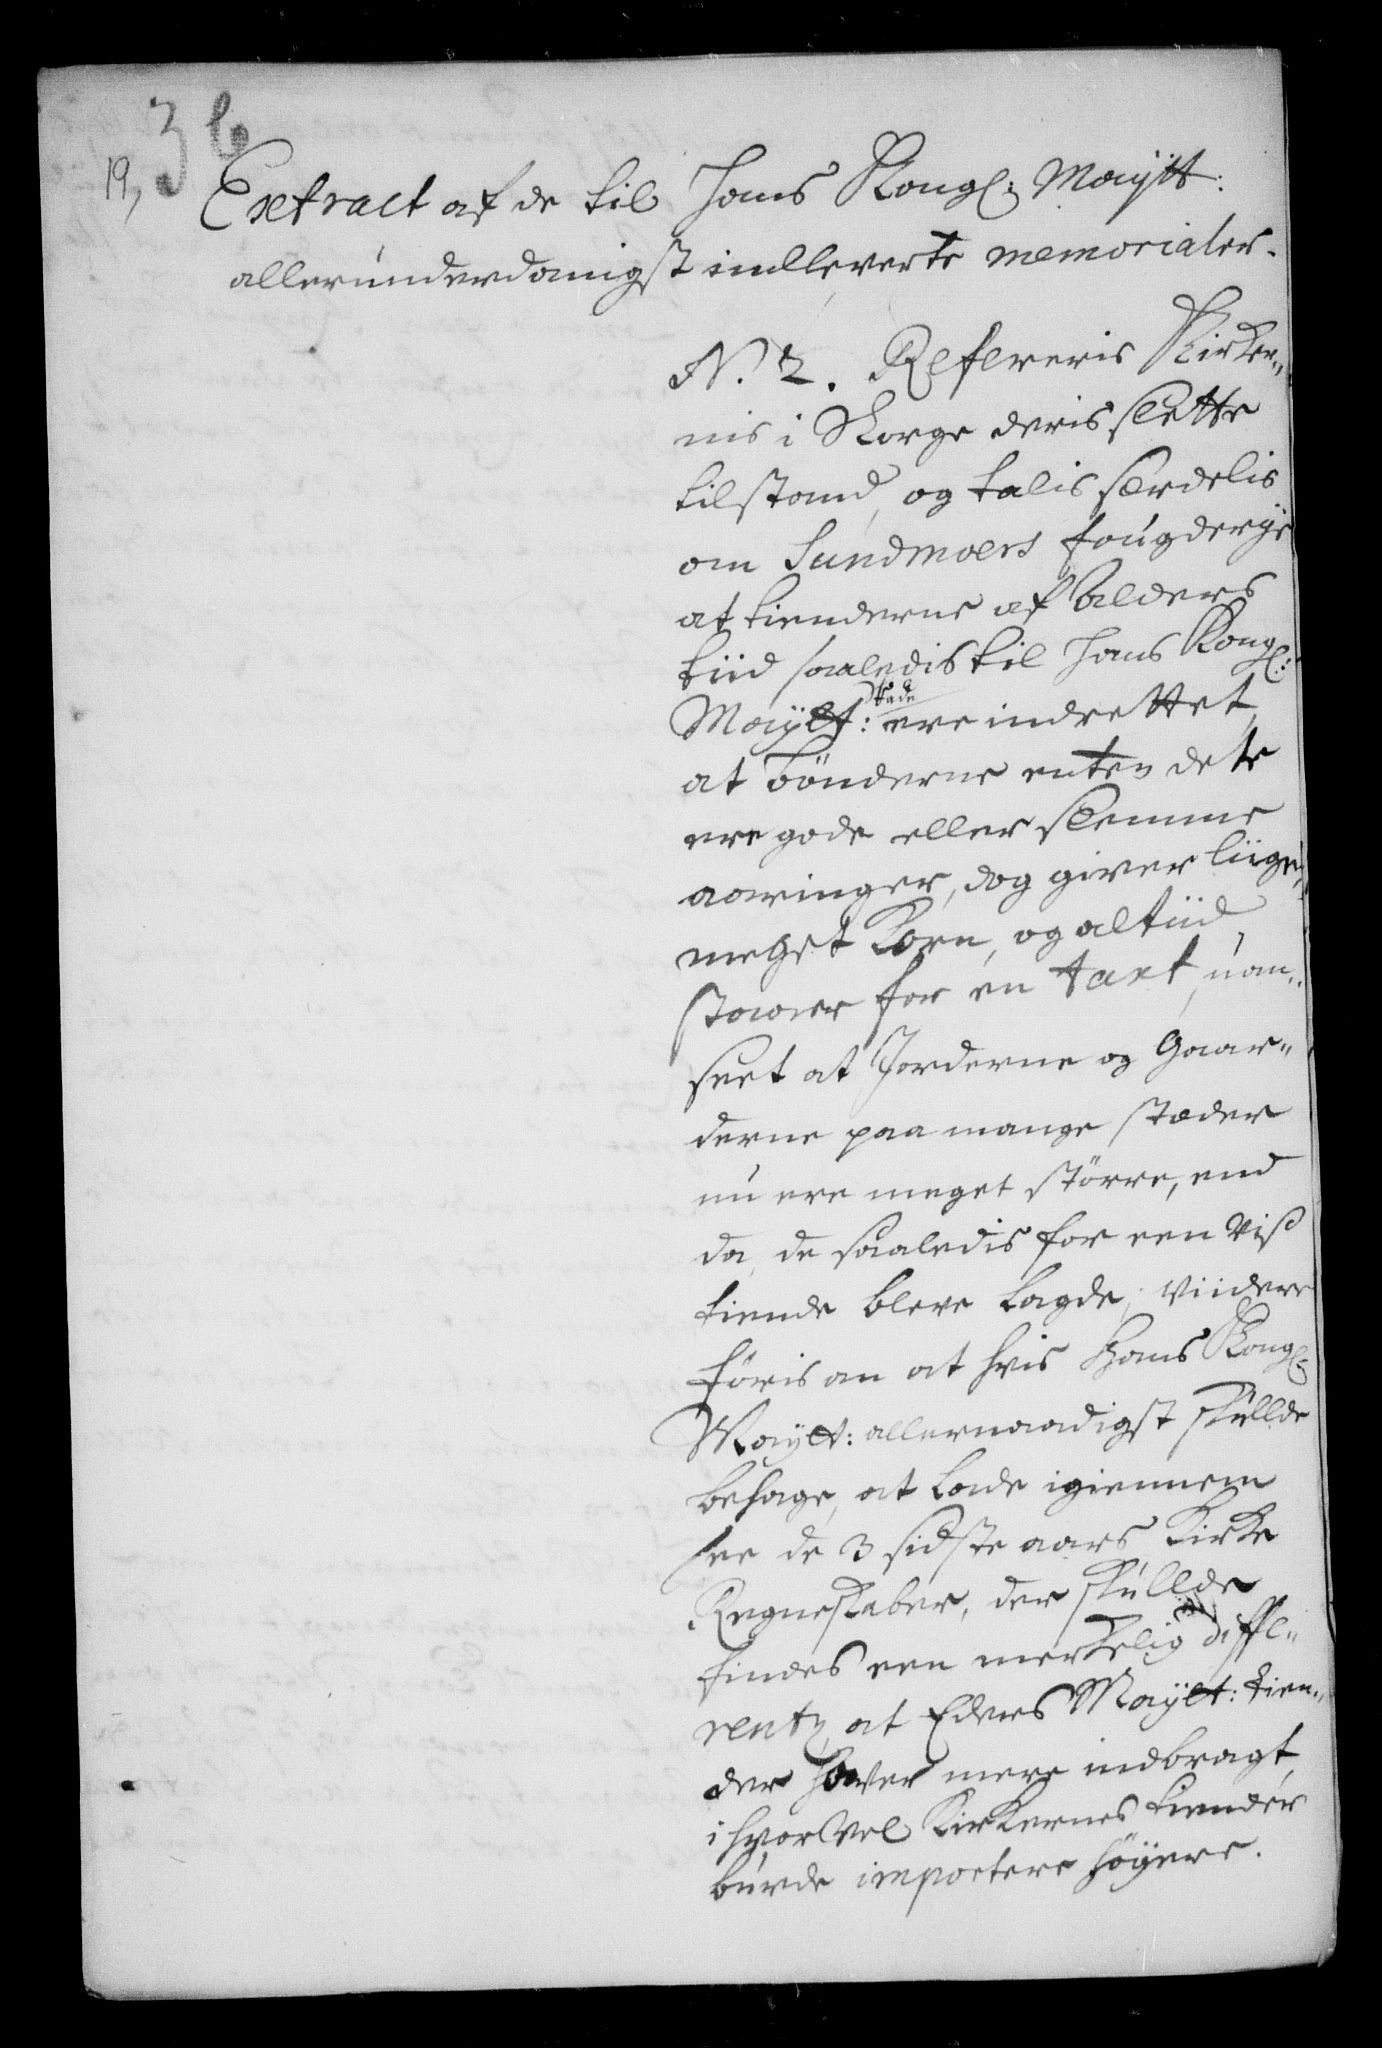 36
19,
Extract af de til Hans Kongl: Mayᵗᵗ:
allerunderdanigst indleverte memorialer.
N. 2. Refereris Kirker„
nis i Norge deris slette
tilstand, og talis særdelis
om Sundmoers fougderje
at tienderne af Alders
tiid saaledis til Hans Kongl:
Maytt: ere indrettet,
at bönderne enten det
ere gode eller slemme
aaringer, dog giver liige„
meget Korn, og altiid
staaer for en taxt, uan„
seet at Jorderne og Gaar„
derne paa mange stæder
nu ere meget større, end
da, de saaledis for een viß
tiende bleve lagde; viidere
føris an at hvis Hans Kongl:
Maytt: allernaadigst skullde
behage, at lade igiennem
see de 3 sidste aars Kirke
Regneskaber, der skullde
findes een merkelig diffe„
rentz, at Eders Maytt: tien„
der haver mere indbragt,
ihvorvel Kirkernes tiender
burde importere höyere.